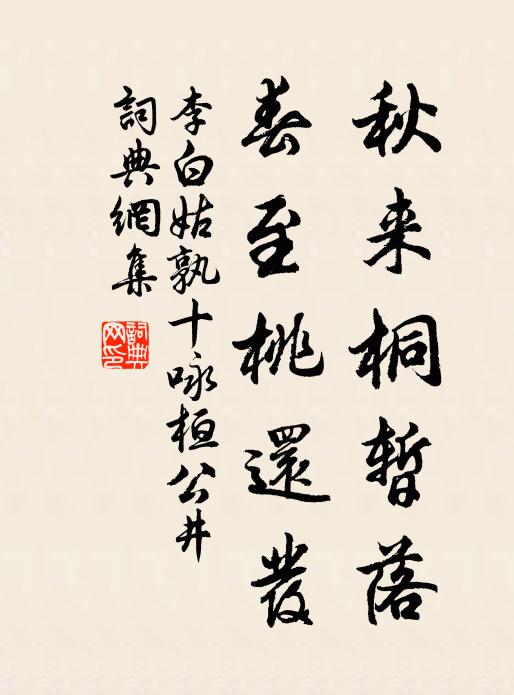 秋来桐暫落
春至桃還發
李白姑孰十咏桓公井
詞典網集
詞典网印